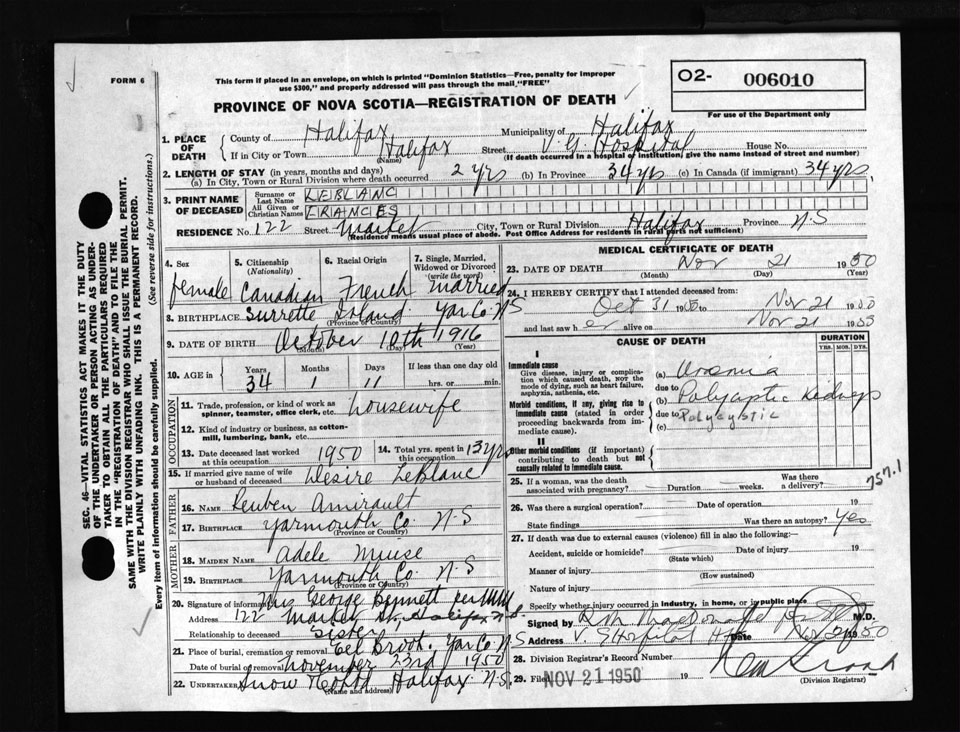 FORM 6
This form if placed in an envelope, on which is printed "Dominion Statistics—Free, penalty for improper
use $300," and properly addressed will pass through the mail "FREE"
PROVINCE OF NOVA SCOTIA—REGISTRATION OF DEATH
O2- 006010
For use of the Department only
1. PLACE OF DEATH
County of Halifax Municipality of Halifax
If in City or Town Halifax Street V. G. Hospital House No.
(Name) (If death occurred in a hospital or institution, give the name instead of street and number)
2. LENGTH OF STAY (in years, months and days)
(a) In City, Town or Rural Division where death occurred 2 yrs (b) In Province 34 yrs (c) In Canada (if immigrant) 34 yrs,
3. PRINT NAME OF DECEASED
Surname or Last Name LEBLANC
All Given or Christian Names FRANCES
RESIDENCE No. 122 Street Market City, Town or Rural Division Halifax Province N-S
(Residence means usual place of abode. Post Office Address for residents in rural parts not sufficient)
4. Sex 5. Citizenship (Nationality) 6. Racial Origin 7. Single, Married, Widowed or Divorced (write the word)
female Canadian French married
8. BIRTHPLACE Surrette Island Yar Co. N-S
(Province or Country)
9. DATE OF BIRTH October 10th 1916
(Month) (Day) (Year)
10. AGE in Years Months Days If less than one day old
34 1 11 hrs. or min.
OCCUPATION
11. Trade, profession, or kind of work as
spinner, teamster, office clerk, etc. housewife
12. Kind of industry or business, as cotton-
mill, lumbering, bank, etc.
13. Date deceased last worked
at this occupation 1950
14. Total years spent in
this occupation 13 yrs
15. If married give name of wife
or husband of deceased Desire LeBlanc
FATHER
16. NAME Reuben Amirault
17. BIRTHPLACE Yarmouth Co. N-S
(Province or Country)
MOTHER
18. MAIDEN NAME Adele Muise
19. BIRTHPLACE Yarmouth Co N-S
(Province or Country)
20. Signature of informant Mrs George Bennett per
Address 122 Market St, Halifax N-S.
Relationship to deceased Sister
21. Place of burial, cremation or removal Eel Brook. Yar Co. N-S
Date of burial or removal November 23rd 1950
22. Undertaker Snow Halifax N-S.
(Name and address)
MEDICAL CERTIFICATE OF DEATH
23. DATE OF DEATH Nov 21 1950
(Month) (Day) (Year)
24. I HEREBY CERTIFY that I attended deceased from:
Oct 31 1950 to Nov 21 1950
and last saw her alive on Nov 21 1950
CAUSE OF DEATH
DURATION
YRS. MOS. DYS.
I
Immediate cause
Give disease, injury or complication
which caused death, not the
mode of dying, such as heart failure,
asphyxia, asthenia, etc.
(a) Uremia
due to
Morbid conditions, if any, giving rise to
immediate cause (stated in order
proceeding backwards from immediate
cause).
(b) Polycyptic Kidneys
due to Polycystic
(c)
II
Other morbid conditions (if important)
contributing to death but not
causally related to immediate cause.
25. If a woman, was the death
associated with pregnancy? Duration weeks. Was there a delivery?
757.1
26. Was there a surgical operation? Date of operation 19
State findings Was there an autopsy? Yes
27. If death was due to external causes (violence) fill in also the following:—
Accident, suicide or homicide? Date of injury 19
(State which)
Manner of injury
(How sustained)
Nature of injury
Specify whether injury occurred in industry, in home, or in public place
Signed by MacDonald M.D.
Address V. G Hospital Hx Date Nov 21 1950
28. Division Registrar's Record Number
29. Filed NOV 21 1950 19
(Division Registrar)
SEC. 46—VITAL STATISTICS ACT MAKES IT THE DUTY
OF THE UNDERTAKER OR PERSON ACTING AS UNDER-
TAKER TO OBTAIN ALL THE PARTICULARS REQUIRED
IN THE "REGISTRATION OF DEATH" AND TO FILE THE
SAME WITH THE DIVISION REGISTRAR WHO SHALL ISSUE THE BURIAL PERMIT.
WRITE PLAINLY WITH UNFADING INK. THIS IS A PERMANENT RECORD.
Every item of information should be carefully supplied. (See reverse side for instructions.)